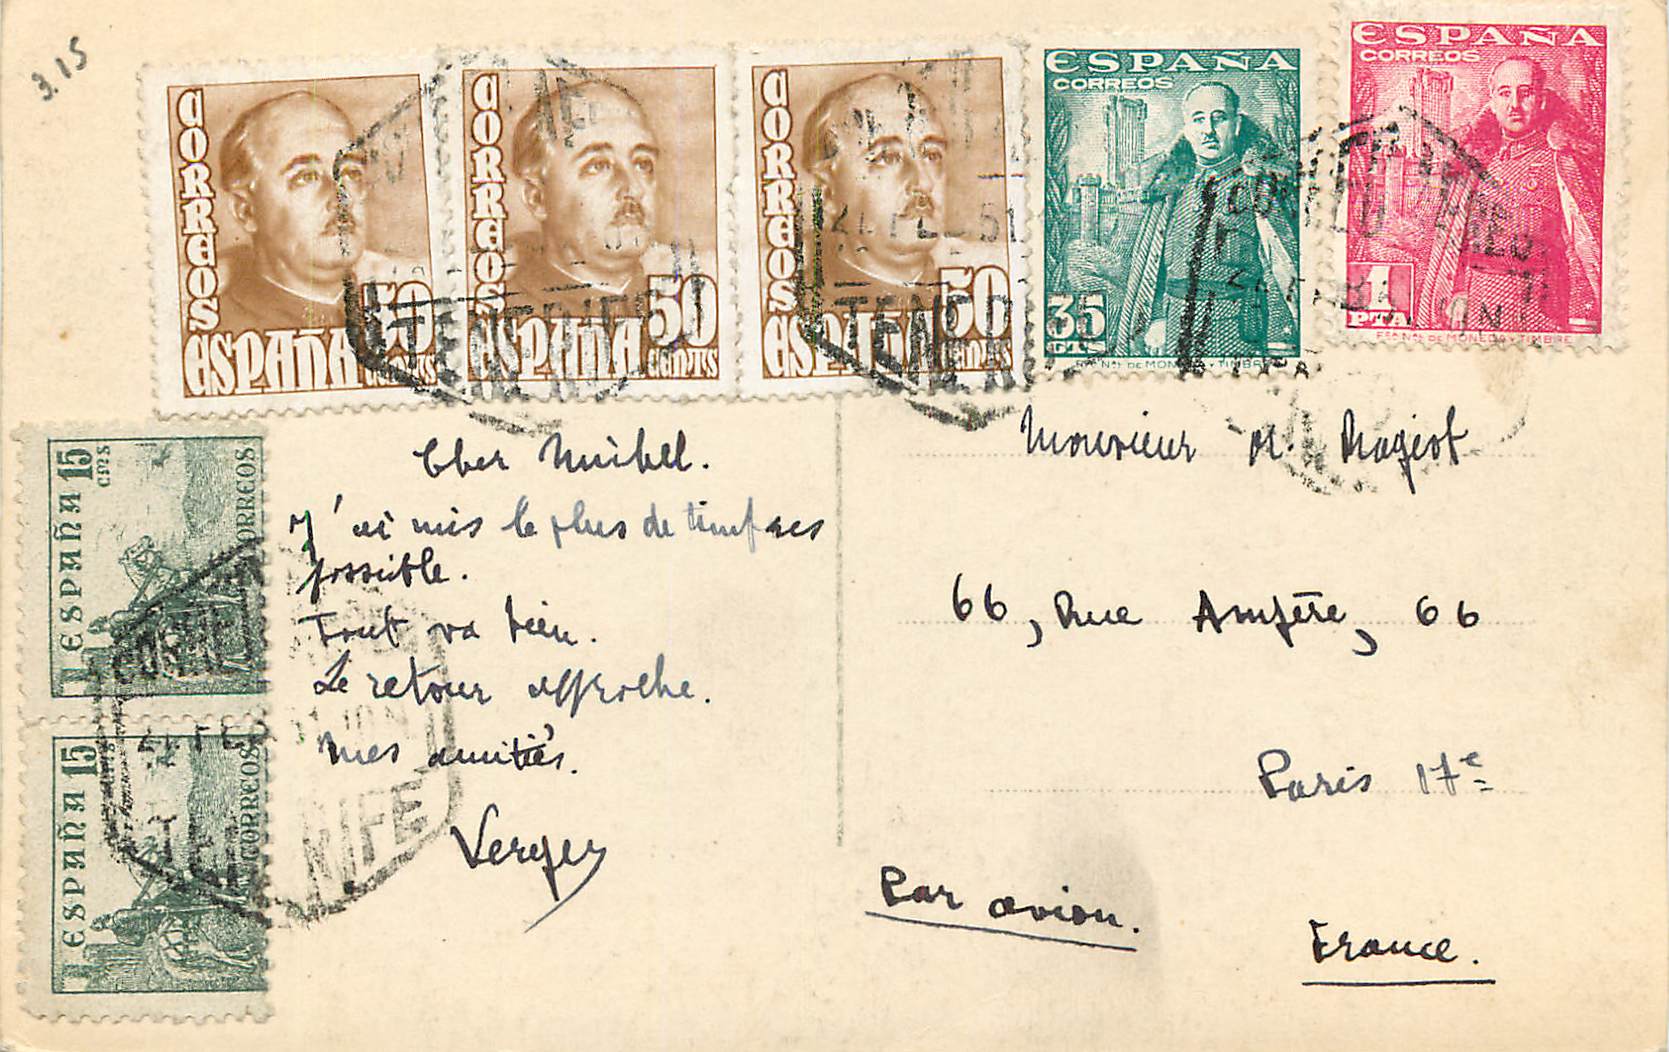 3.15
CORREOS
ESPAÑA
50
CENTS
CORREOS
ESPAÑA
50
CENTS
CORREOS
ESPAÑA
50
CENTS
ESPAÑA
CORREOS
35
CTS
ESPAÑA
CORREOS
1
PTA
Fca Nal DE MONEDA Y TIMBRE
ESPAÑA 15
CMS
CORREOS
ESPAÑA 15
CORREOS
Cher Michel.
J'ai mis le plus de timbres
possible.
Tout va bien.
Le retour approche.
Mes amitiés.
Verger
Monsieur M. Mageot
66, Rue Ampère, 66
Paris 17e
Par avion.
France.